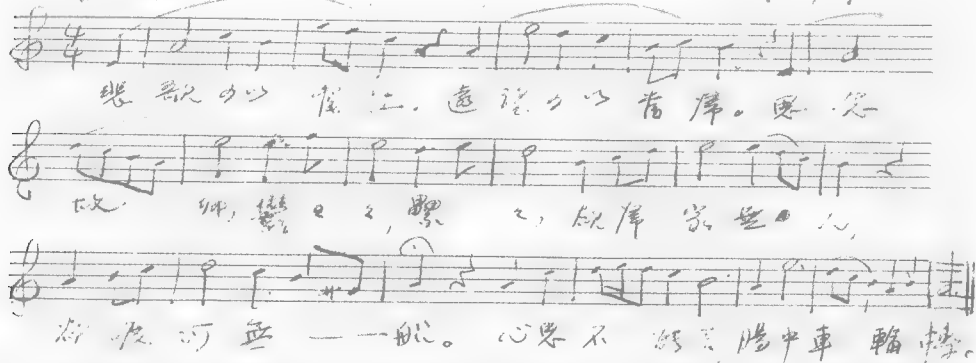 悲歌可以當泣.遠望可以當歸。思念
故鄉,鬱々,累々,欲歸家無人,
欲渡河無——船。心思不能言腸中車輪轉。